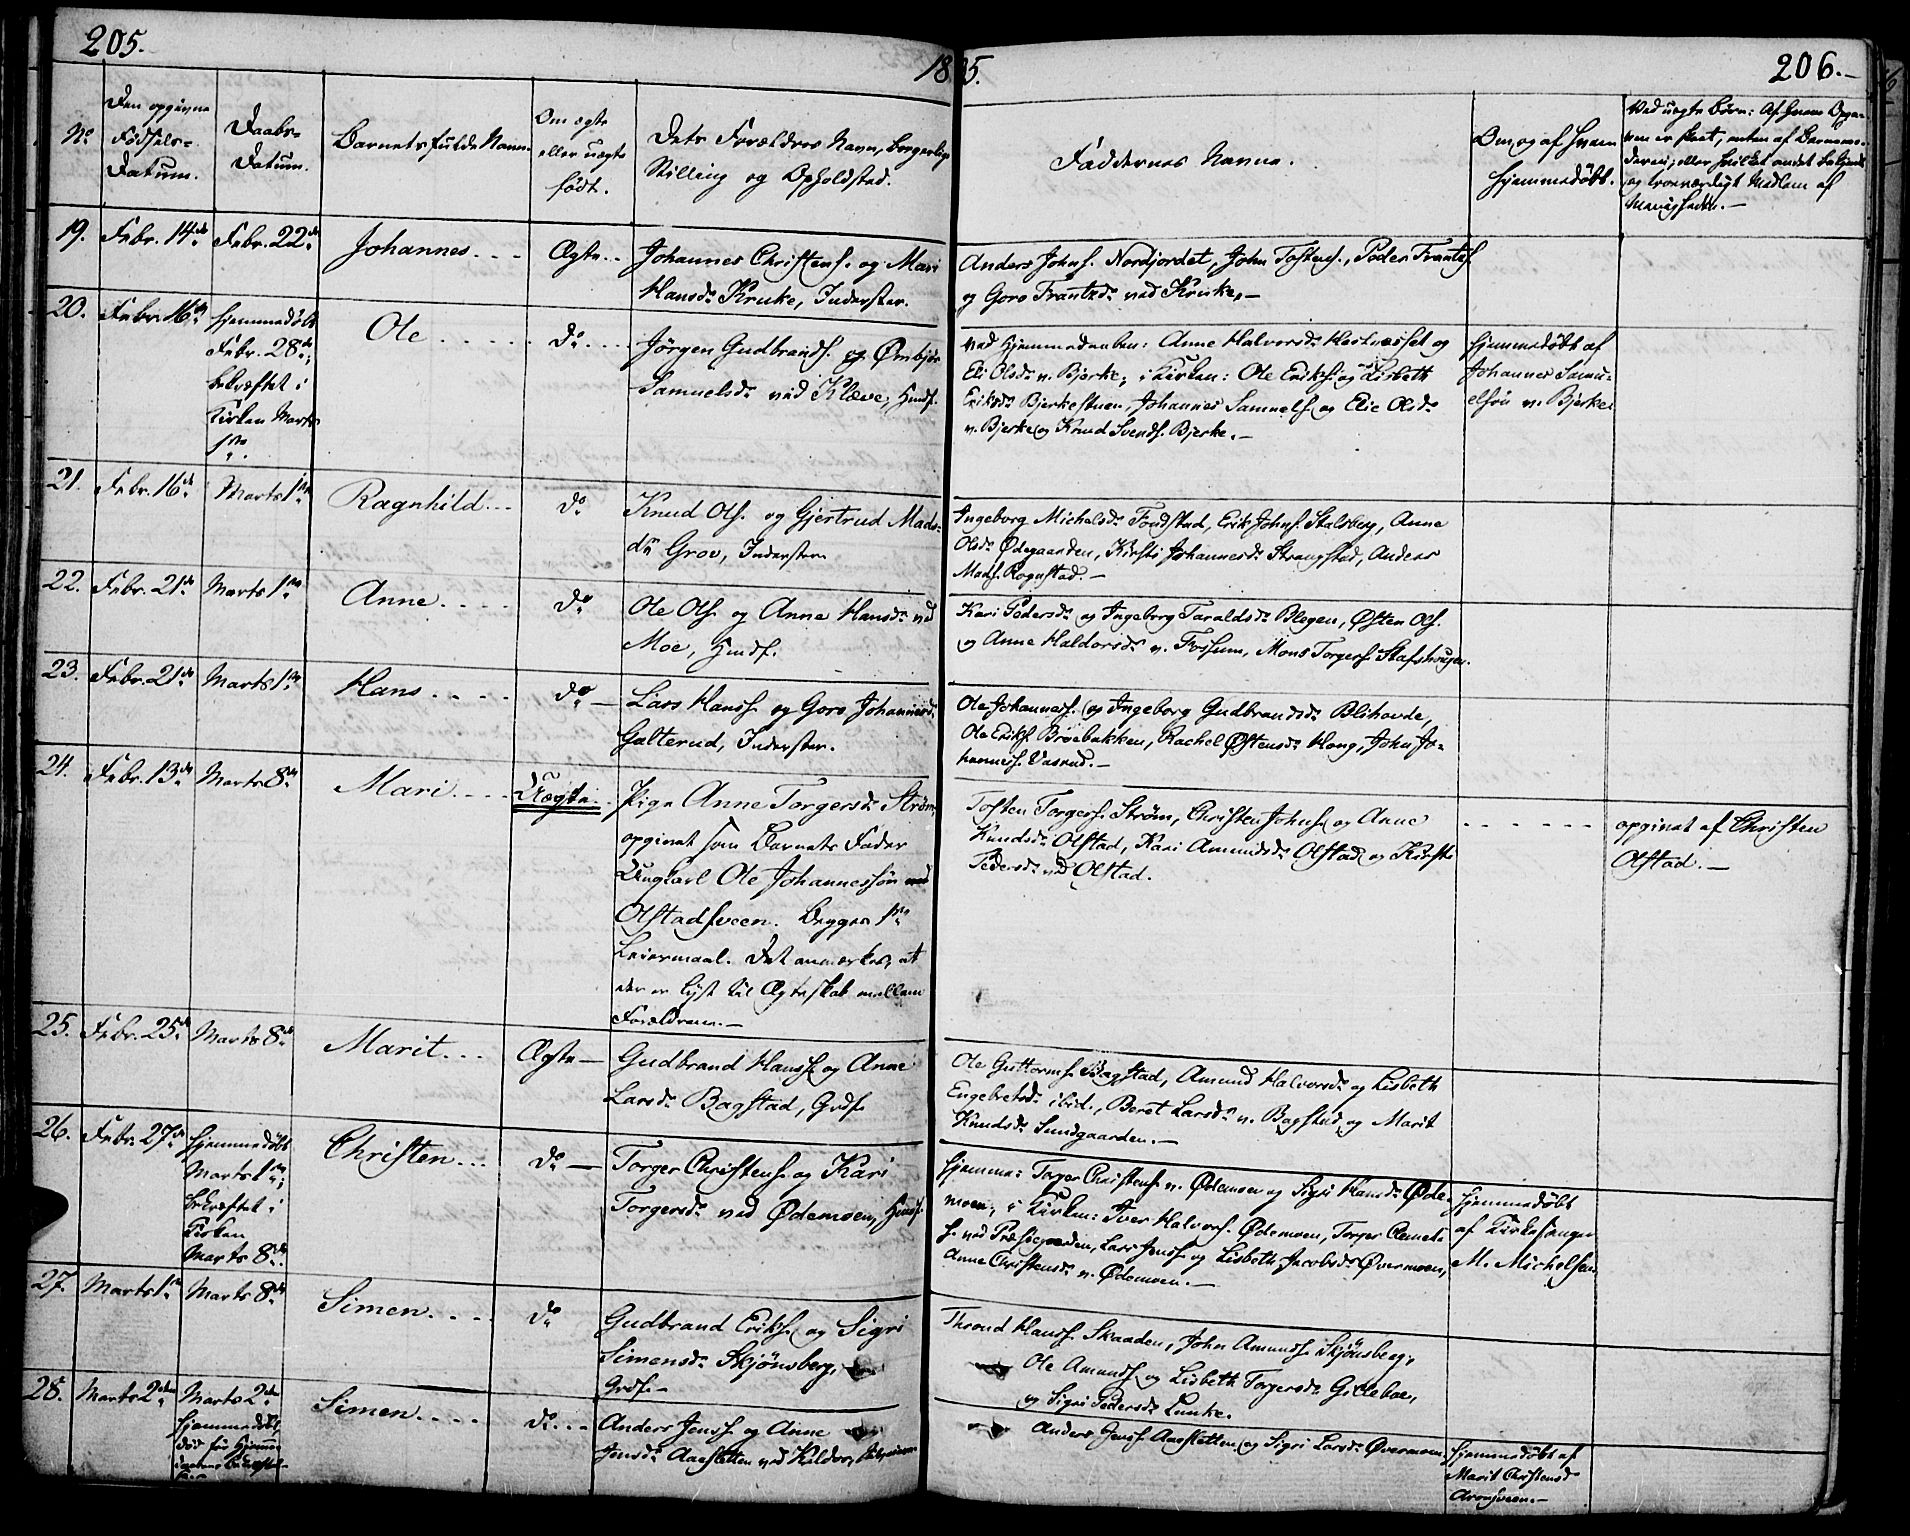 205.
18 5.
206.
No
Den opgivne Fødsels-Datum.
Daabs-Datum.
Barnets fulde Navn.
Om ægte eller uægte født.
Dets Forældres Navn, borgerlige Stilling og Opholdsted.
Faddernes Navne.
Om og af hvem hjemmedøbt.
Ved uægte Børn: Af hvem Opgaven er skeet, enten af Barnemoderen, eller hvilket andet bekjendt og troværdigt Medlem af Menigheden.
19. Febr. 14de Febr. 22de Johannes Ægte
Johannes Christens. og Mari
Hansdr Kruke, Inderster.
Anders Johns. Nordjordet, John Tostens., Peder Frantzs.
og Goro Frantzdr ved Kruke.
20. Febr. 16de Hjemmedøbt
Febr. 28de;
bekræftet i
Kirken Marts
1ste.
Ole Do
Jørgen Gudbrands. og Ømbjør
Samuelsdr ved Klæve, Huusf.
ved Hjemmedaaben: Anne Halvorsdr Hestnæsset og
Eli Olsdr v. Bjerke; i Kirken: Ole Eriks. og Lisbeth
Eriksdr Bjerkestuen, Johannes Samuels. og Elie Olsdr
v. Bjerke og Knud Svends. Bjerke.
hjemmedøbt af
Johannes Samu-
elsøn v. Bjerke
21. Febr. 16de Marts 1ste Ragnhild Do
Knud Ols. og Gjertrud Mads-
dr Grov, Inderster
Ingeborg Michelsdr Fondstad, Erik Johns. Stalsberg, Anne
Olsdr Ødegaarden, Kirsti Johannesdr Strangstad, Anders
Mads. Rognstad.
22. Febr. 21de Marts 1ste Anne Do
Ole Ols. og Anne Hansdr ved
Moe, Huusf.
Kari Pedersdr og Ingeborg Taraldsdr Blegen, Østen Ols.
og Anne Haldorsdr v. Fossum, Mons Torgers. Stafshougen.
23. Febr. 21de Marts 1ste Hans Do
Lars Hanss. og Goro Johannesdr
Galterud, Inderster.
Ole Johanness. og Ingeborg Gudbrandsdr Blihovde,
Ole Eriks. Broebakken, Rachel Østensdr Haug, John Jo-
hanness. Vasrud.
24. Febr. 13de Marts 8de Mari Uægte
Pige Anne Torgersdr Strøm,
opgivet som Barnets Fader
Ungkarl Ole Johannessøn ved
Olstadsveen. Begges 1ste
Leiermaal. Det anmærkes, at
der er lyst til Ægteskab mellem
Forældrene.
Tosten Torgers. Strøm, Christen Johns. og Anne
Knudsdr Olstad, Kari Amundsdr Olstad og Kirsti
Pedersdr ved Olstad.
opgivet af Christen
Olstad.
25. Febr. 25de Marts 8de Marit Ægte
Gudbrand Hanss. og Anne
Larsdr Bagstad, Grdf.
Ole Guttorms. Bagstad, Amund Halvorsdr og Lisbeth
Engebretsdr ibid., Beret Larsdr v. Bagstad og Marit
Knudsdr Sundgaarden.
26. Febr. 27de Hjemmedøbt
Marts 1ste;
bekræftet i
Kirken
Marts 8de.
Christen Do
Torger Christens. og Kari
Torgersdr ved Ødemoen, Huusf.
hjemme: Torger Christens. v. Ødemoen og Sigri Hansdr Øde-
moen; i Kirken: Iver Halvors. Ødemoen, Torger Clemet-
s. ved Præstegaarden, Lars Jenss. og Lisbeth Jacobsdr Øvermoen,
Anne Christensdr v. Ødemoen.
Hjemmedøbt
af Kirkesanger
M. Michelsen
27. Marts 1ste Marts 8de Simen Do
Gudbrand Eriks. og Sigri
Simensdr Skjønsberg,
Grdf.
Thrond Hanss. Skaaden, John Amunds. Skjønsberg,
Ole Amunds. og Lisbeth Torgersdr Gilleboe,
og Sigri Pedersdr Lunke.
28. Marts 2den Marts 2den
hjemmedøbt,
død før Hjemme-
daabens bekræftel-
se
Simen Do
Anders Jenss. og Anne
Jensdr Aasletten ved Kildes,
Anders Jenss. Aasletten og Sigri Larsdr Øvermoen
hjemmedøbt af
Marit Christensdr
Aronsveen.